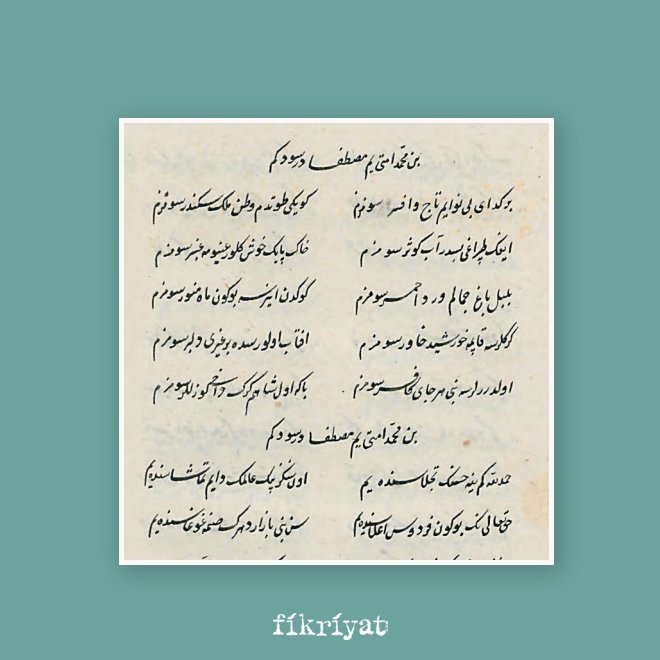 بن محمد امتی یم مصطفا در سودکم
بر کدای بی نوایم تاج و افسر سومزم کویکی طوتدم وطن ملک سکندر سومزم
ایفک طپراغی بسدر آب کوثر سومزم خاک پایک خوش کلور عنبر سومزم
بلبل باغ جمالم ورد احمر سومزم کوکدن اینرسه بوکون ماه منور سومزم
کر کلرسه قاپیمه خورشید خاور سومزم افتاب اولورسه ده بر غیری دلبر سومزم
اولدررلرسه بنی هر جای کافر سومزم باکه اول شاهم کرک داخی کوزللر سومزم
بن محمد امتی یم مصطفا در سودکم
حمد لله کم ینه حسنک تجلاسنده یم اول سنکز یک عالمک دایم تماشاسنده یم
حق تعالی نک بوکون فردوس اعلاسنده یم سن بنی بازارده صنمه غوغاسنده یم
fikriyat